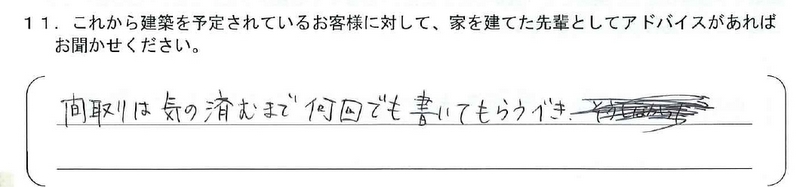 １１．これから建築を予定されているお客様に対して、家を建てた先輩としてアドバイスがあれば
お聞かせください。
間取りは気の済むまで何回でも書いてもらうべき.